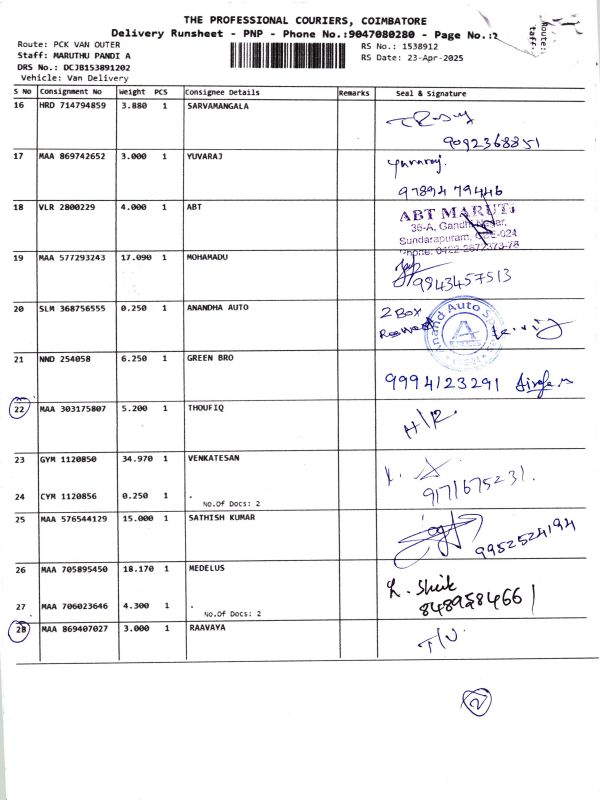 THE PROFESSIONAL COURIERS, COIMBATORE
Delivery Runsheet - PNP - Phone No.:9047080280 - Page No.:2
Route: PCK VAN OUTER
RS No.: 1538912
Staff: MARUTHU PANDI A
RS Date: 23-Apr-2025
DRS No.: DCJB153891202
Vehicle: Van Delivery
Route:
Staff:
S No Consignment No Weight PCS Consignee Details Remarks Seal & Signature
16 HRD 714794859 3.880 1 SARVAMANGALA
9092368851
17 MAA 869742652 3.000 1 YUVARAJ
Yuvaraj.
97894 79446
18 VLR 2800229 4.000 1 ABT
ABT MARUTI
36-A, Gandhi Nagar,
Sundarapuram, CBE-024
Phone: 0422-2672373-78
19 MAA 577293243 17.090 1 MOHAMADU
9943457513
20 SLM 368756555 0.250 1 ANANDHA AUTO
2 Box
Anand Auto
A
21 NND 254058 6.250 1 GREEN BRO
9994123291
22 MAA 303175807 5.200 1 THOUFIQ
H/R
23 GYM 1120850 34.970 1 VENKATESAN
9171675231.
24 CYM 1120856 0.250 1 .
No.Of Docs: 2
25 MAA 576544129 15.000 1 SATHISH KUMAR
9952524194
26 MAA 705895450 18.170 1 MEDELUS
K. Sheik
8489584661
27 MAA 706023646 4.300 1 .
No.Of Docs: 2
28 MAA 869407027 3.000 1 RAAVAYA
T/U
2